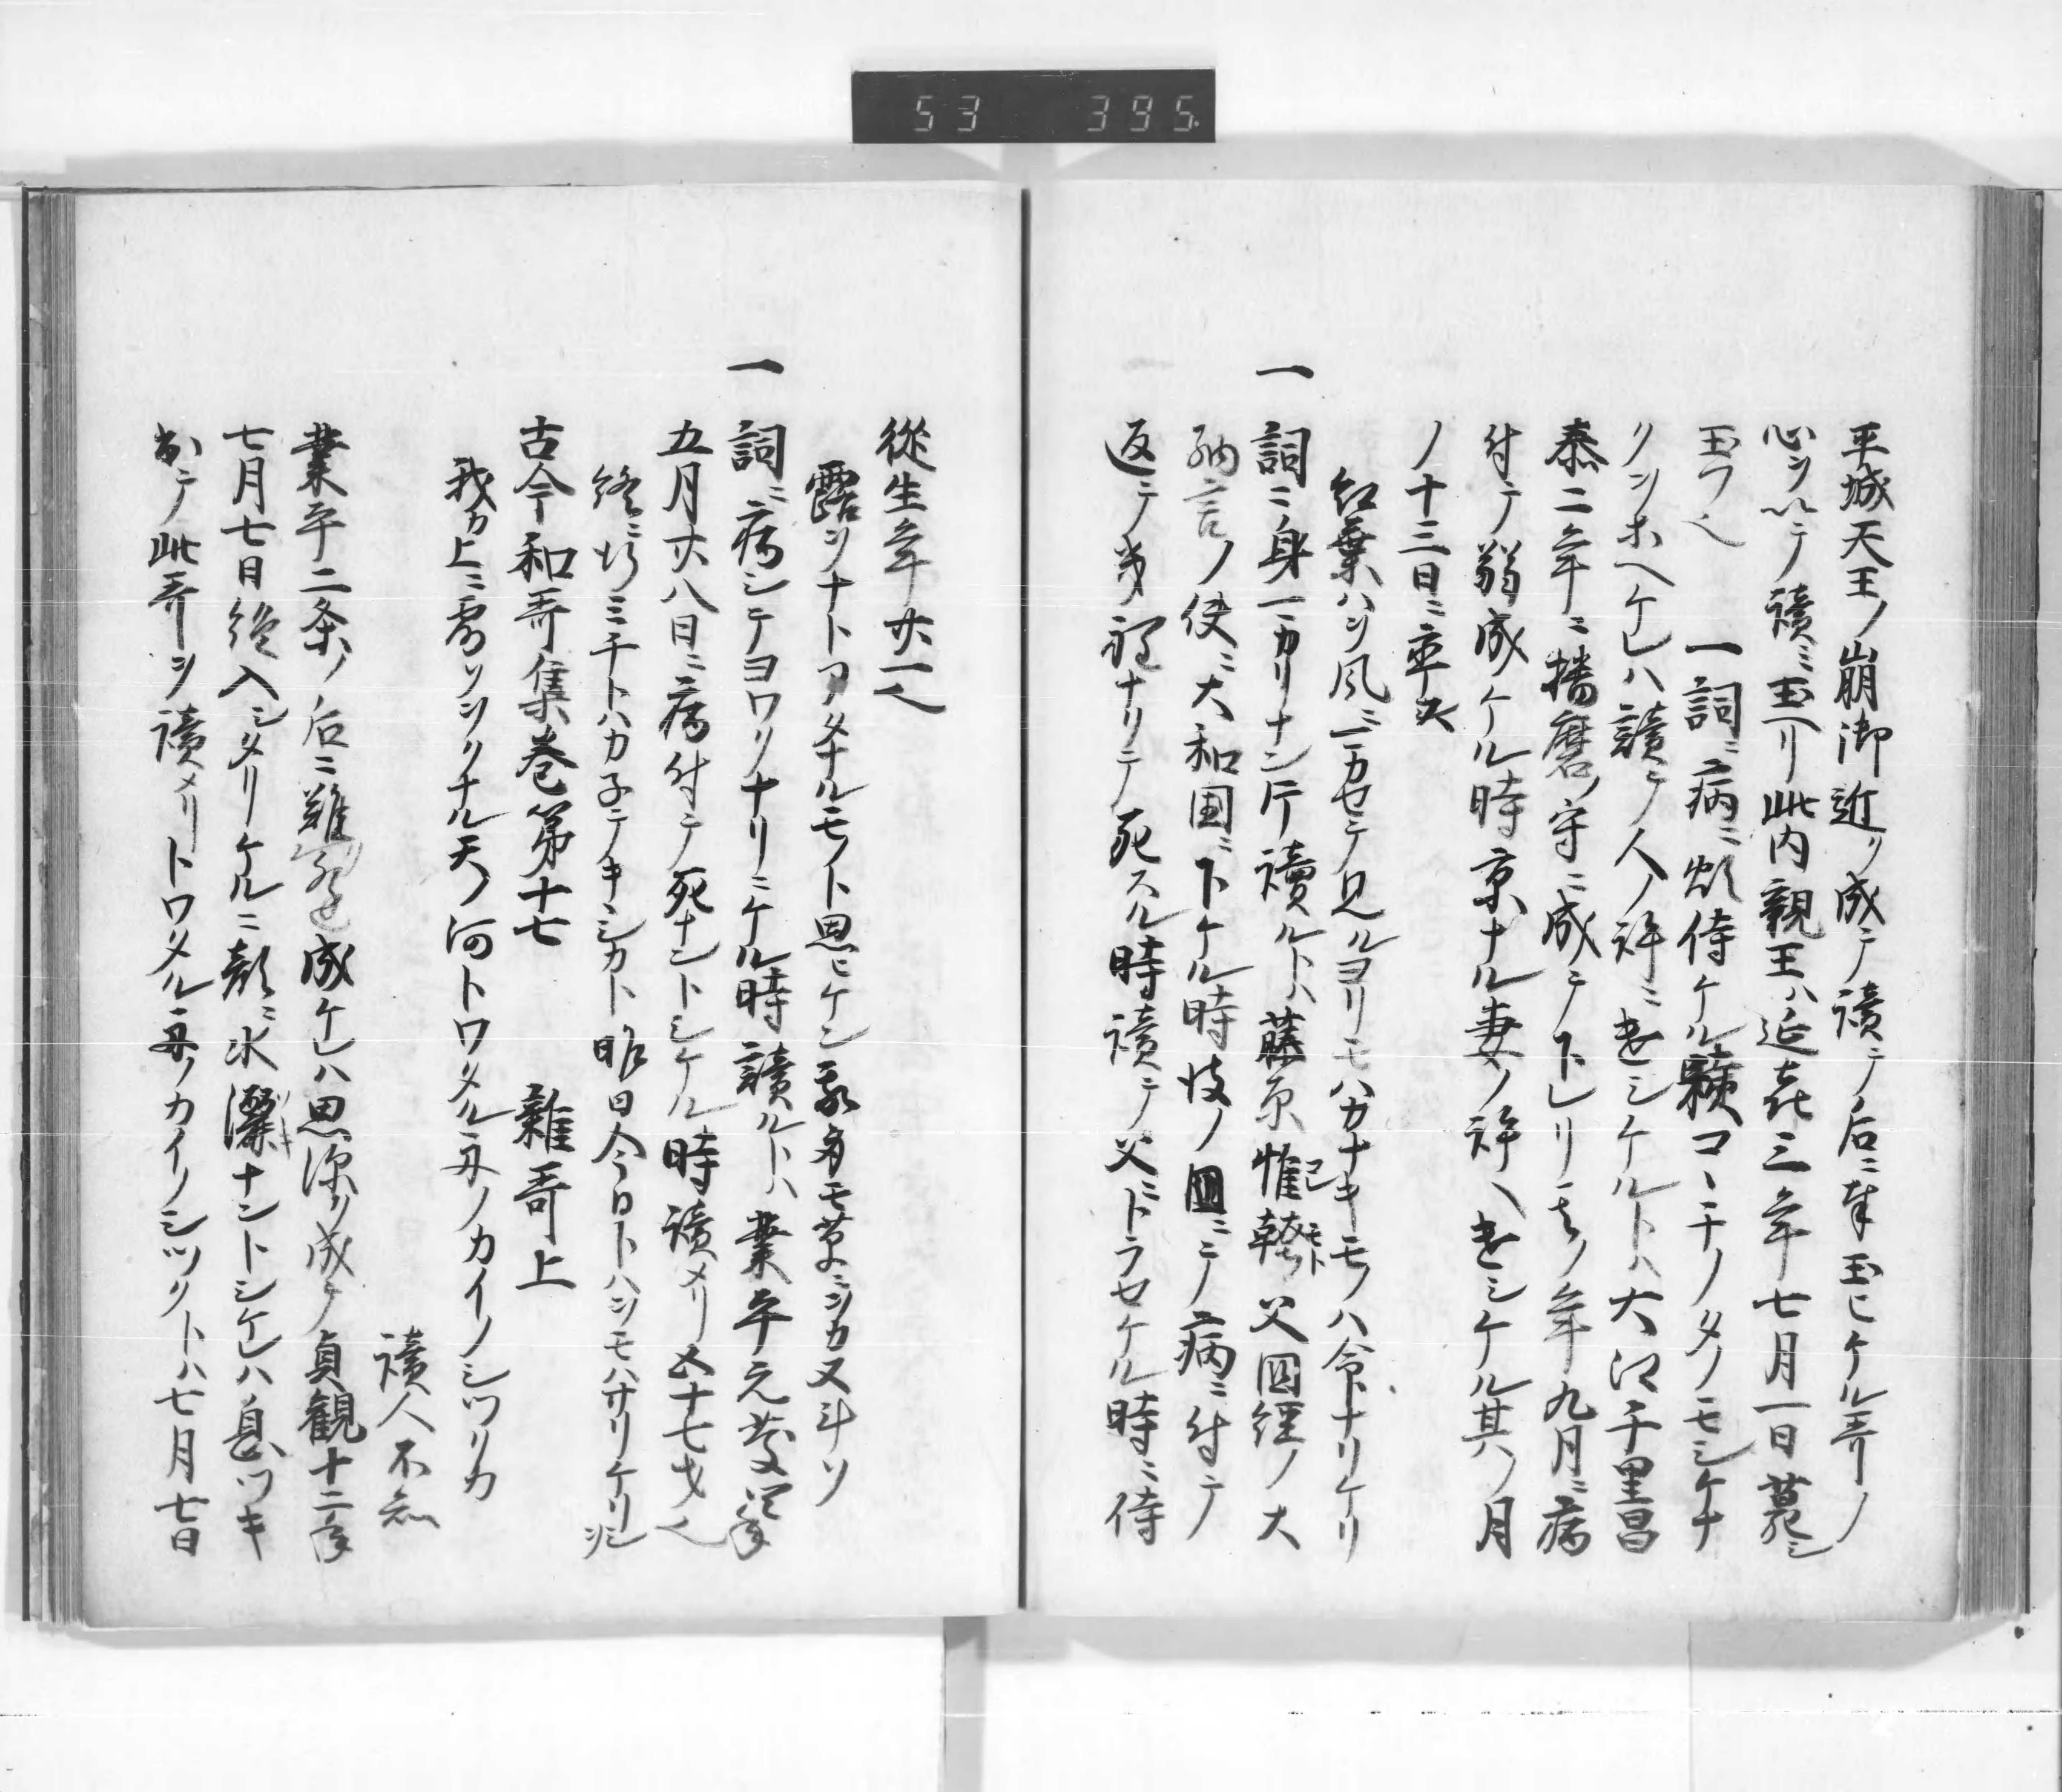 53 395
平城天王ノ崩御近ク成テ讀テノ后ニ奉玉ヒケル哥ノ
心ヲ以テ讀ミ玉ヘリ此内親王ハ延喜三年七月一日薨シ
玉フ也 一詞ニ病ニ煩侍ケル龝コヽチノタノモシケナ
クヲホヘケレハ讀テ人ノ許ニ遣シケルトハ大江千里昌
泰二年ニ播磨ノ守ニ成テ下レリ其ノ年九月ニ病
付テ弱成ケル時京ナル妻ノ許ヘ遣シケル其ノ月
ノ十三日ニ卒
紅葉ハヲ風ニマカセテ見ルヨリモハカナキモノハ命ナリケリ
一 詞ニ身マカリナン片讀ルトハ藤原惟幹父国経ノ大
納言ノ使ニ大和国ニ下ケル時彼ノ国ニテ病ニ付テ
返テ弥ナリテ死スル時讀テ父ニトラセケル時ニ侍
従生年廿一也
露ヲナトアタナルモノト思ヒケン我身モ草ニヲカヌ斗ソ
一 詞ニ病シテヨワクナリニケル時讀ルトハ業平元慶四年
五月廿八日ニ病付テ死ナントシケル時讀メリ五十七才也
終ニ行ミチトハカ子テキヽシカト昨日今日トハヲモハサリケリ
古今和哥集巻第十七 雜哥上
我カ上ニ露ソヲクナル天ノ河トワタル舟ノカイノシツクカ
讀人不知
業平二条ノ后ニ難成ケレハ思深ク成テ貞観十二年
七月七日絶入シタリケルニ顔ニ水灑ナントシケレハ息ツキ
出テ此哥ヲ讀メリトワタル舟ノカイノシツクトハ七月七日